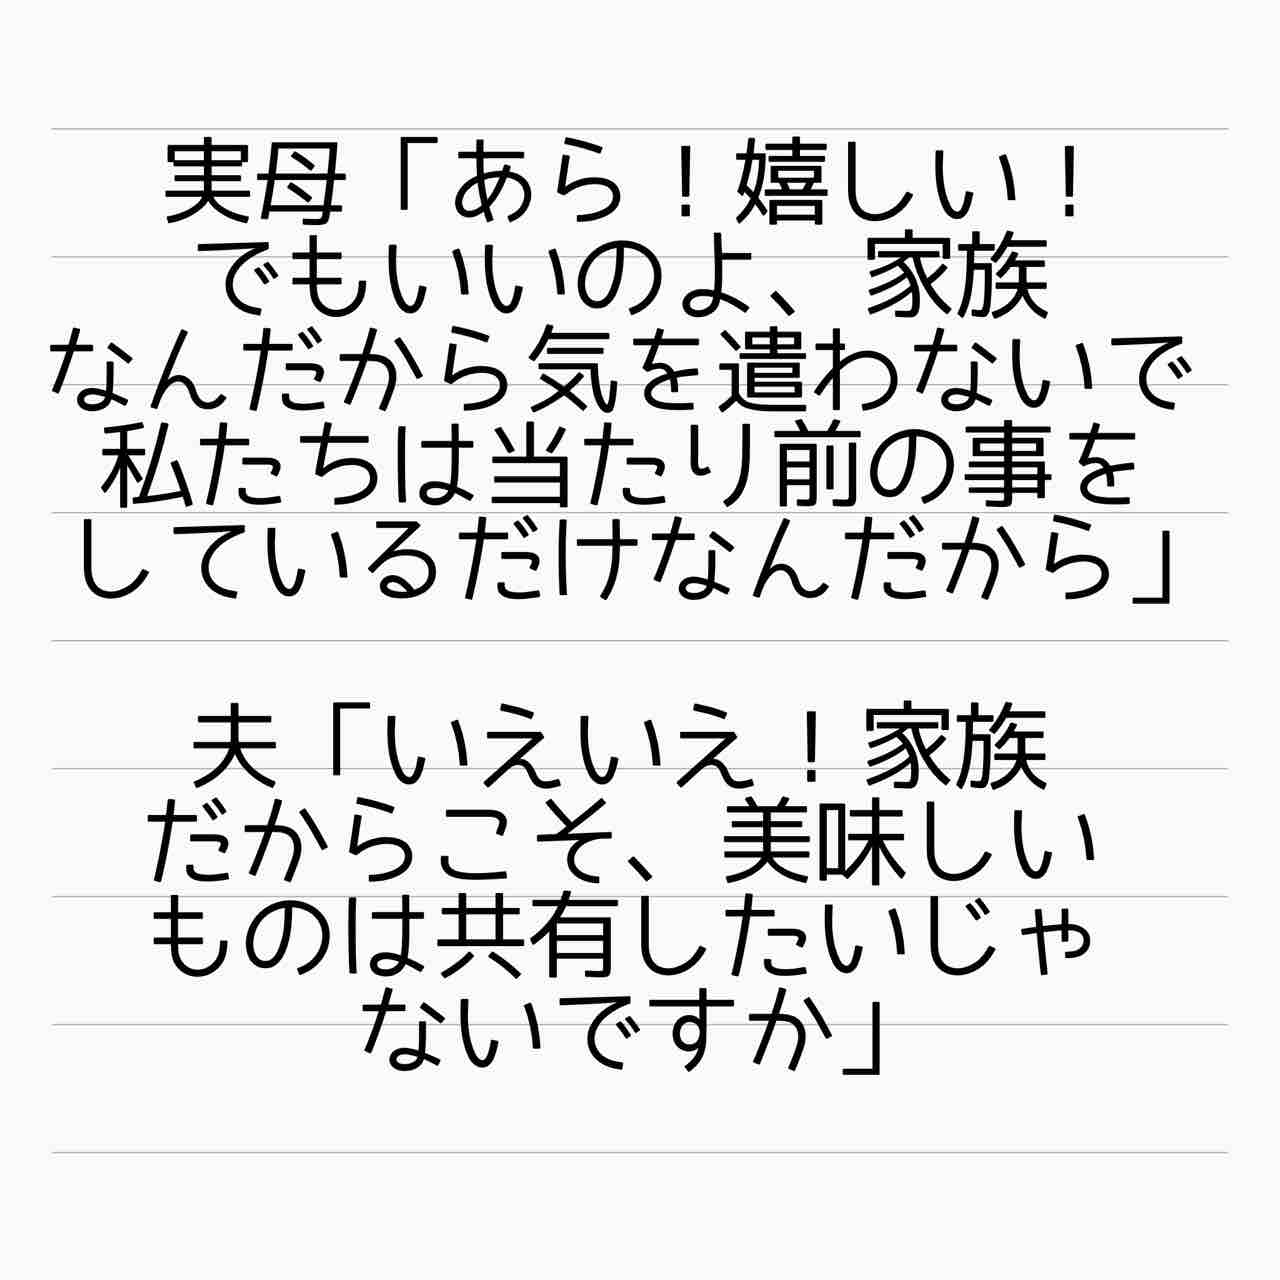 実母「あら！嬉しい！
でもいいのよ、家族
なんだから気を遣わないで
私たちは当たり前の事を
しているだけなんだから」
夫「いえいえ！家族
だからこそ、美味しい
ものは共有したいじゃ
ないですか」